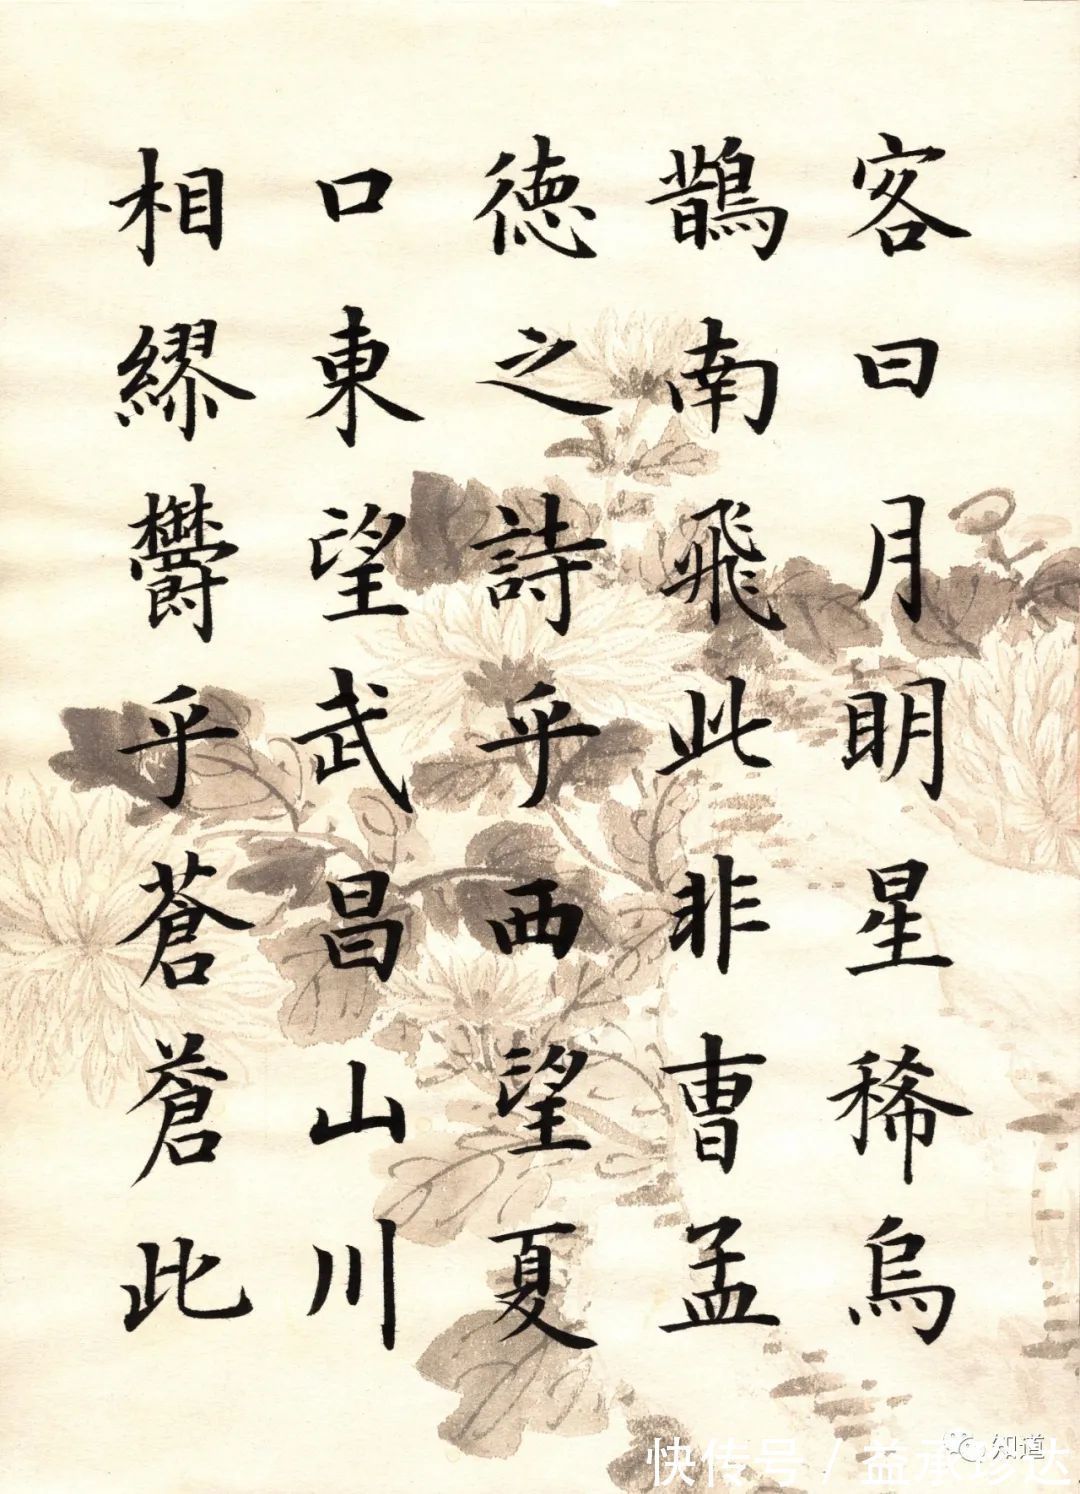 客曰月明星稀烏
鵲南飛此非曹孟
德之詩乎西望夏
口東望武昌山川
相繆鬱乎蒼蒼此
知道
快传号/益承珍达